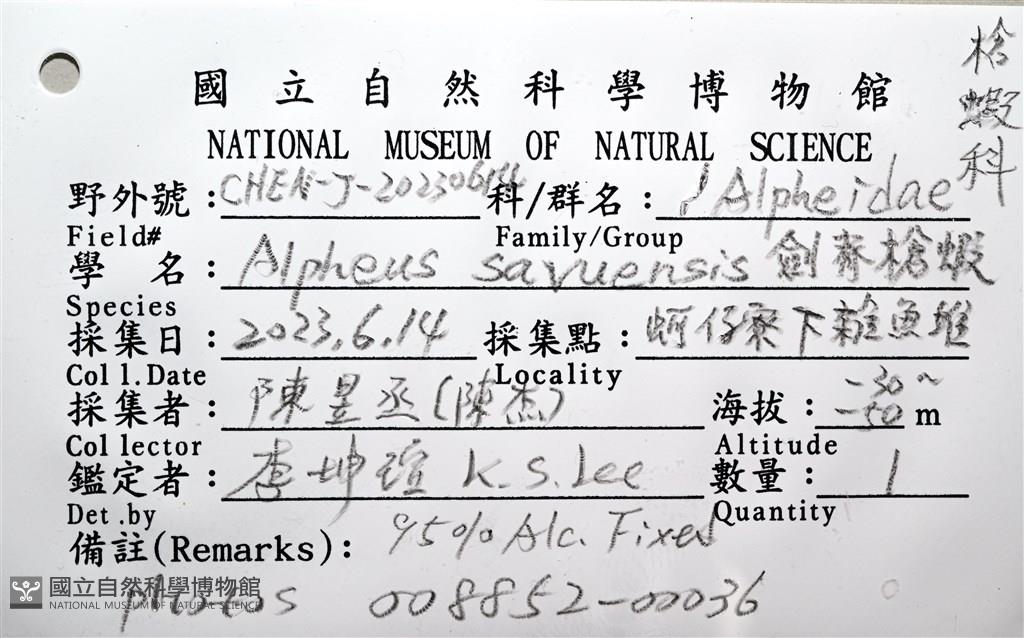 槍蝦科
國立自然科學博物館
NATIONAL MUSEUM OF NATURAL SCIENCE
野外號：CHEN-J-20230614 科/群名：Alpheidae
Field# Family/Group
學名：Alpheus savuensis 劍脊槍蝦
Species
採集日：2023.6.14 採集點：蚵仔寮下雜魚堆
Coll.Date Locality
採集者：陳昱丞(陳杰) 海拔：-30~-50 m
Collector Altitude
鑑定者：李坤瑄 K.S.Lee 數量：1
Det.by Quantity
備註(Remarks)：95% Alc. Fixed
photos 008852-00036
國立自然科學博物館
NATIONAL MUSEUM OF NATURAL SCIENCE